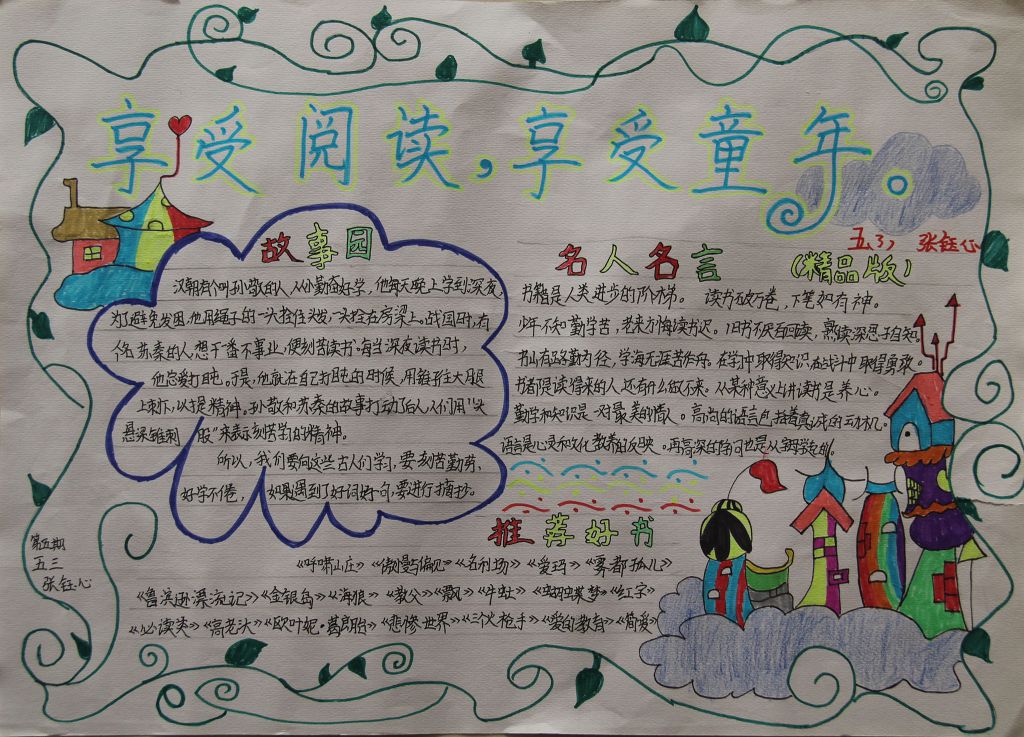 享受阅读,享受童年。
五、3) 张钰心
故事园
汉朝有个叫孙敬的人,人份勤奋好学,他每天晚上学到深夜,
为了避免发困,他用绳子的一头拴住头发,一头拴在房梁上。战国时,有
个名苏秦的人,想干番不事业,便刻苦读书。每当深夜读书时,
他总爱打盹。于是,他就在自己打盹的时候,用锥往大腿
上刺下,以提精神。孙敬和苏秦的故事打动了后人,人们用"头
悬梁锥刺股"来表示刻苦学习的精神。
所以,我们要向这些古人们学习,要刻苦勤劳、
好学不倦,如果遇到了好词好句,要进行摘抄。
名人名言 (精品版)
书籍是人类进步的阶梯。 读书破万卷,下笔如有神。
少年不知勤学苦,老来方悔读书迟。旧书不厌百回读,熟读深思子自知。
书山有路勤为径,学海无涯苦作舟。在学中取得知识,在战斗中取得勇敢。
书都是读得来的人,还有什么做不来。从某种意义上讲,读书是养心。
勤学和知识是一对最美的情人。高尚的语言包括着真诚的动机。
语言是心灵和文化教养的反映。再高深的学问也是从字母学起的。
推荐好书
《呼啸山庄》《傲慢与偏见》《名利场》《爱玛》《雾都孤儿》
《鲁滨逊漂流记》《金银岛》《海狼》《教父》《飘》《牛虻》《蝴蝶梦》《红字》
《必读类》《高老头》《欧叶妮·葛朗台》《悲惨世界》《三伙枪手》《爱的教育》《简爱》
第五期
五三
张钰心